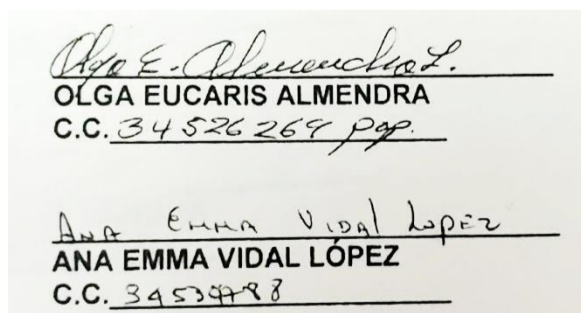 Olga E. Almendra L.
OLGA EUCARIS ALMENDRA
C.C. 34526269 pop.
Ana Emma Vidal Lopez
ANA EMMA VIDAL LÓPEZ
C.C.